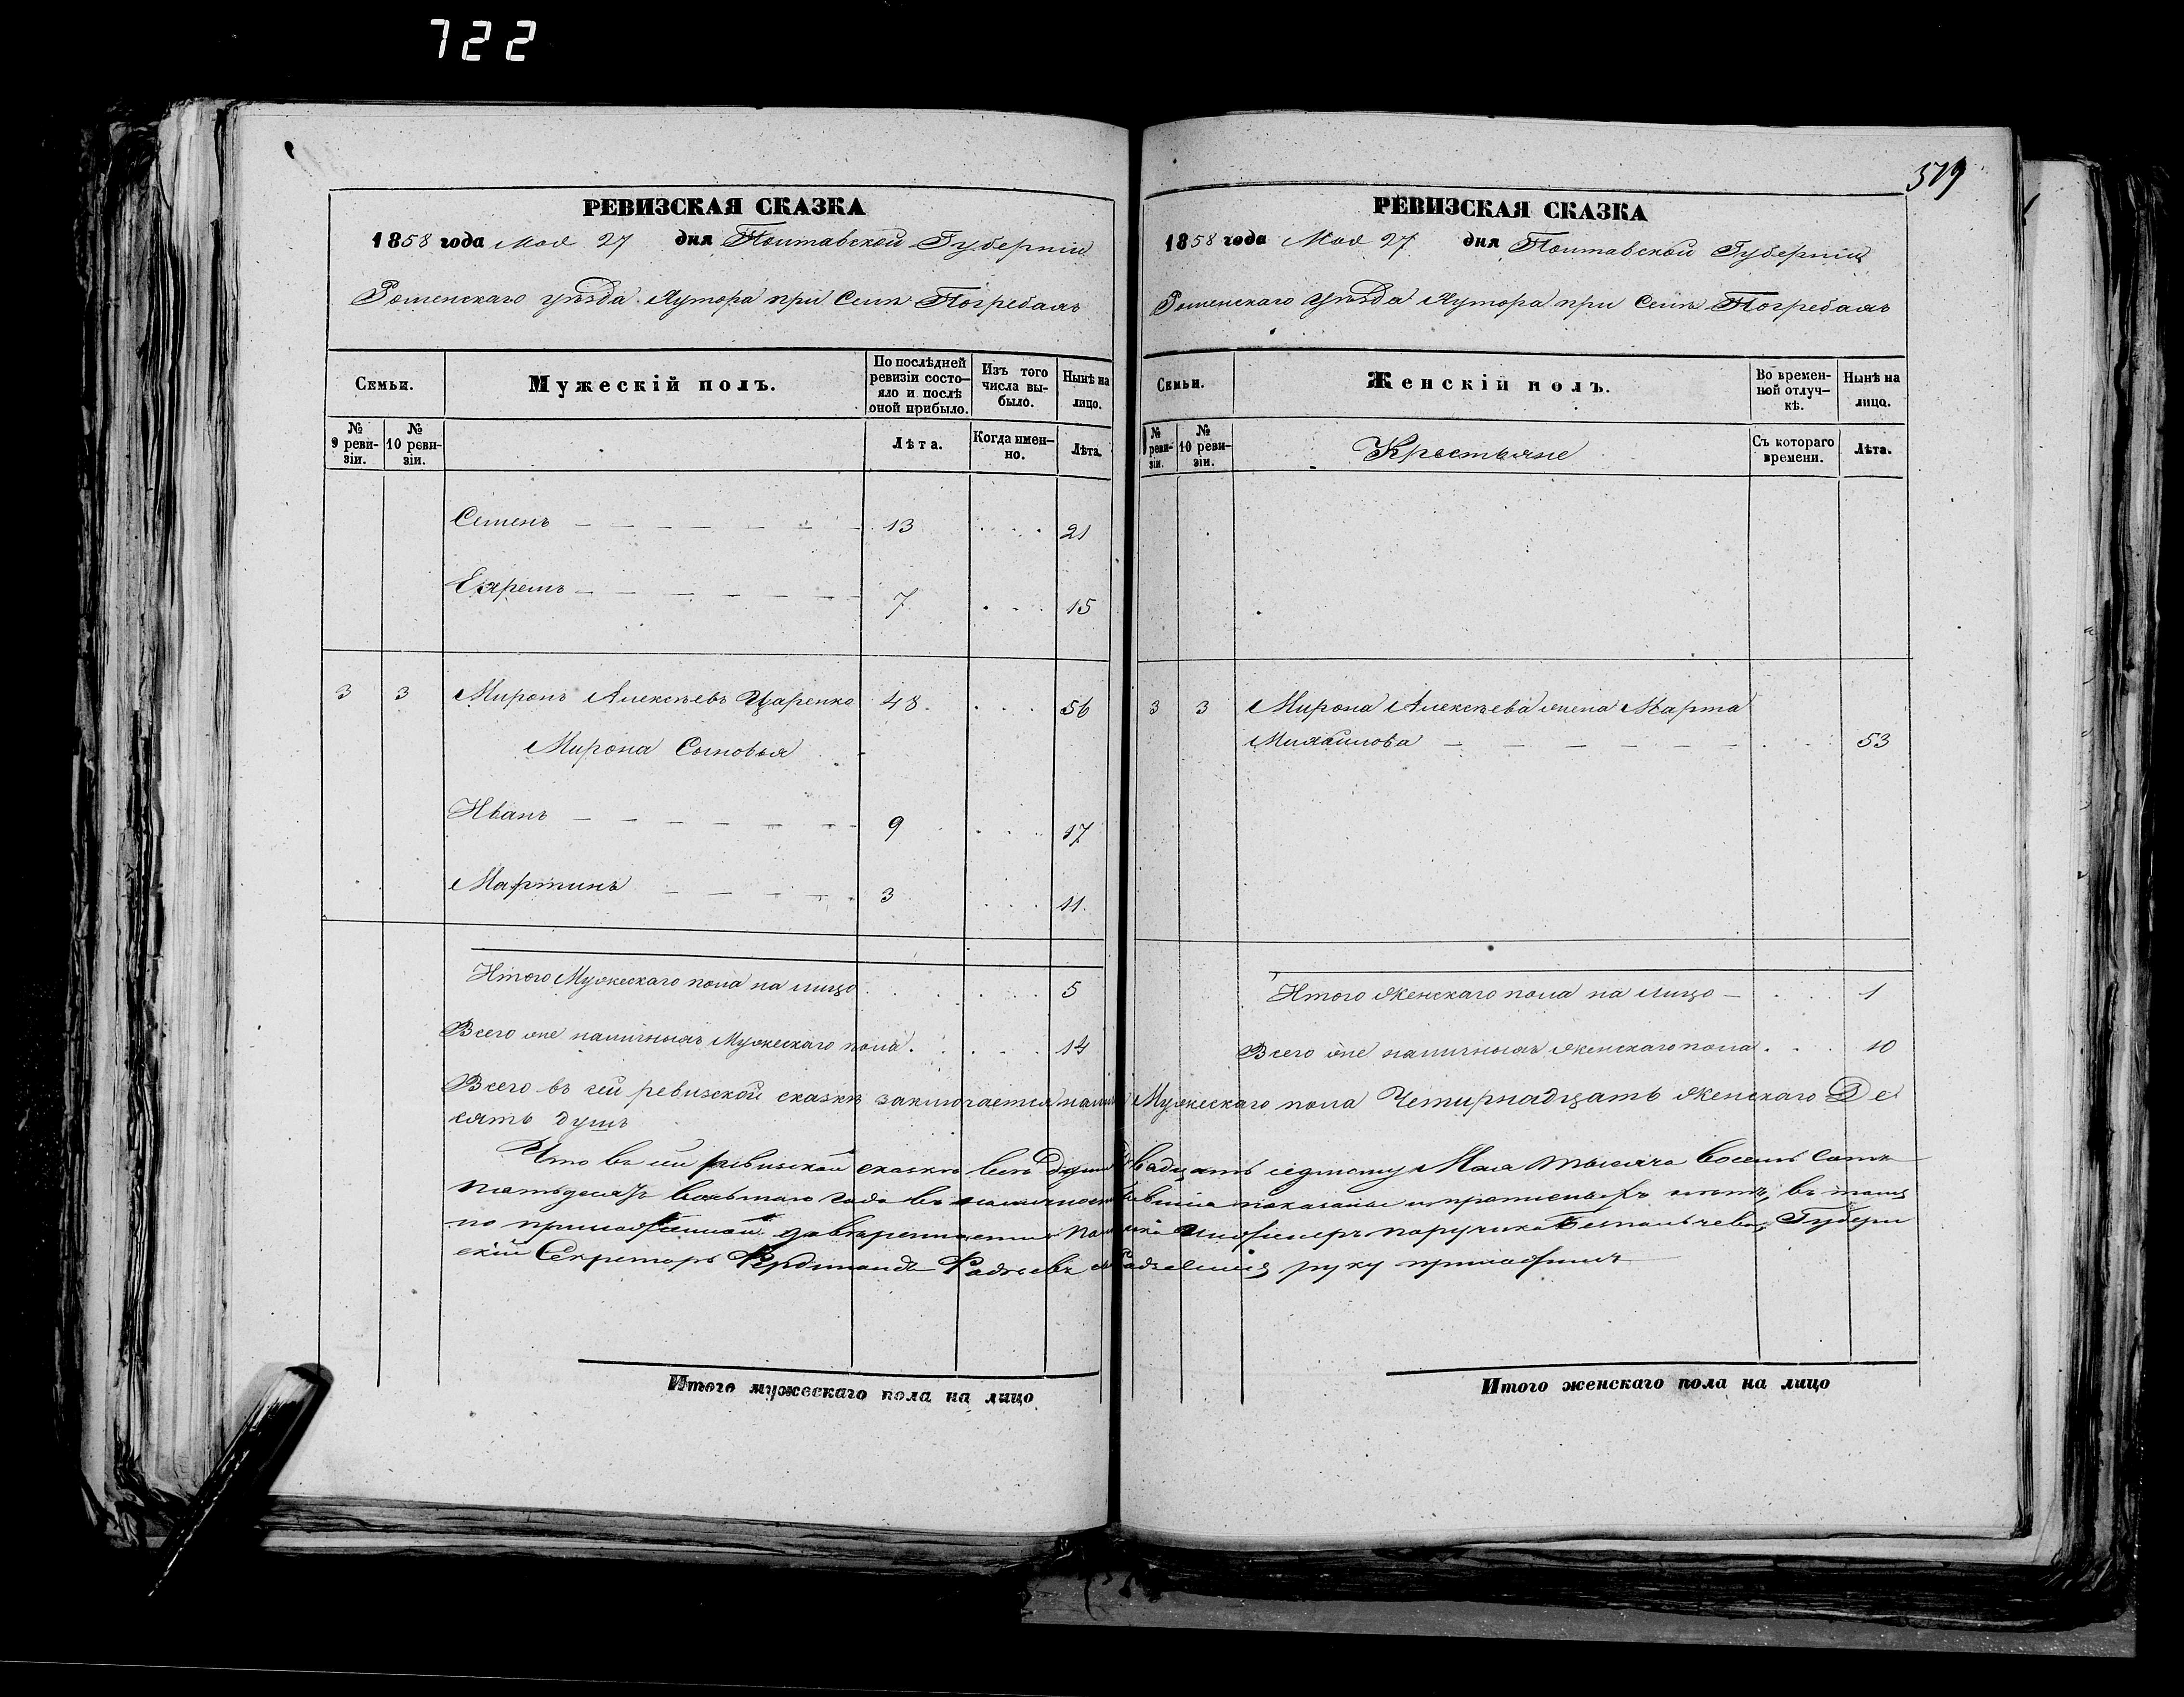 722
579
РЕВИЗСКАЯ СКАЗКА
1858 года Мая 27 дня Полтавской Губерніи
Роменскаго уѣзда Хутора при Селѣ Погребахъ
Семьи.
Мужескій полъ.
По послѣдней ревизіи состояло и послѣ оной прибыло.
Изъ того числа выбыло.
Нынѣ на лицо.
№ 9 ревизіи.
№ 10 ревизіи.
Лѣта.
Когда именно.
Лѣта.
Семенъ 13 21
Ефремъ 7 15
3 3 Миронъ Алексѣевъ Царенко 48 56
Мирона Сыновья
Иванъ 9 17
Мартинъ 3 11
Итого Мужескаго пола на лицо 5
Всего же наличныхъ Мужескаго пола 14
РЕВИЗСКАЯ СКАЗКА
1858 года Мая 27 дня Полтавской Губерніи
Роменскаго уѣзда Хутора при Селѣ Погребахъ
Семьи.
Женскій полъ.
Во временной отлучкѣ.
Нынѣ на лицо.
№ ревизіи.
№ 10 ревизіи.
Крестьяне
Съ котораго времени.
Лѣта.
3 3 Мирона Алексѣева жена Марта
Михайлова 53
Итого Женскаго пола на лицо 1
Всего же наличныхъ Женскаго пола 10
Всего въ сей ревизской сказкѣ заключается Мужескаго пола Четирнадцать Женскаго Де
сять душъ
Что въ сей ревизской сказкѣ всѣ души двадцать седьмому Мая тысяча восемь сотъ
пятьдесятъ восьмаго года въ показаны и въ томъ
по приложенной довѣренности поручика Губерн
скій Секретарь Фердинандъ руку приложилъ
Итого мужескаго пола на лицо
Итого женскаго пола на лицо